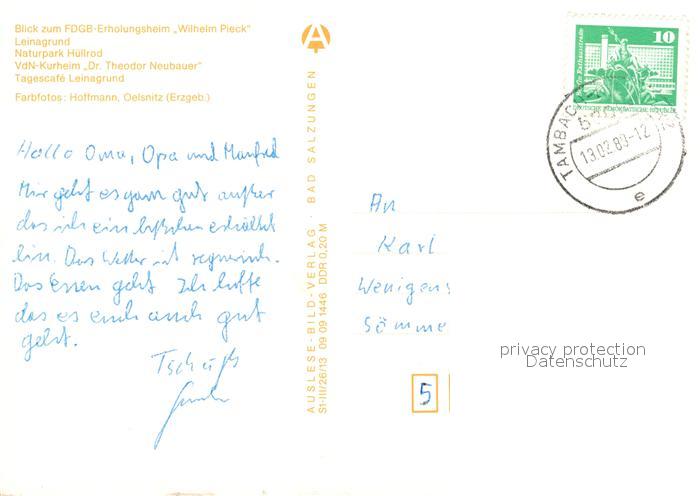 Blick zum FDGB-Erholungsheim „Wilhelm Pieck"
Leinagrund
Naturpark Hüllrod
VdN-Kurheim „Dr. Theodor Neubauer"
Tagescafé Leinagrund
Farbfotos: Hoffmann, Oelsnitz (Erzgeb.)
Hallo Oma, Opa und Manfred
Mir geht es ganz gut außer
das ich ein bißchen erkältet
bin. Das Wetter ist regnerisch.
Das Essen geht. Ich hoffe
das es euch auch gut
geht.
Tschüß
AUSLESE-BILD-VERLAG · BAD SALZUNGEN
St-III/26/13 09 09 1446 DDR 0,20 M
10
Berlin, Rathausstraße
DEUTSCHE DEMOKRATISCHE REPUBLIK
TAMBACH
13.02.80-12
e
An
Karl
Wenigens
Sömme
5
privacy protection
Datenschutz